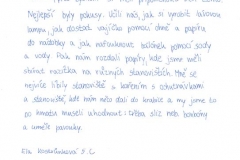 Nejlepší byly pokusy. Učili nás, jak si vyrobit lávovou
lampu, jak dostat vajíčko pomocí ohně a papíru
do nádobky a jak nafouknout balónek pomocí sody
a vody. Pak nám rozdali papíry, kde jsme měli
sbírat razítka na různých stanovištích. Mně se
nejvíce líbily stanoviště s kořením s ochutnávkami
a stanoviště, kde nám něco dali do krabice a my jsme to
po hmatu museli uhodnout: třeba sliz nebo bonbóny
a umělé pavouky.
Ela 5. C